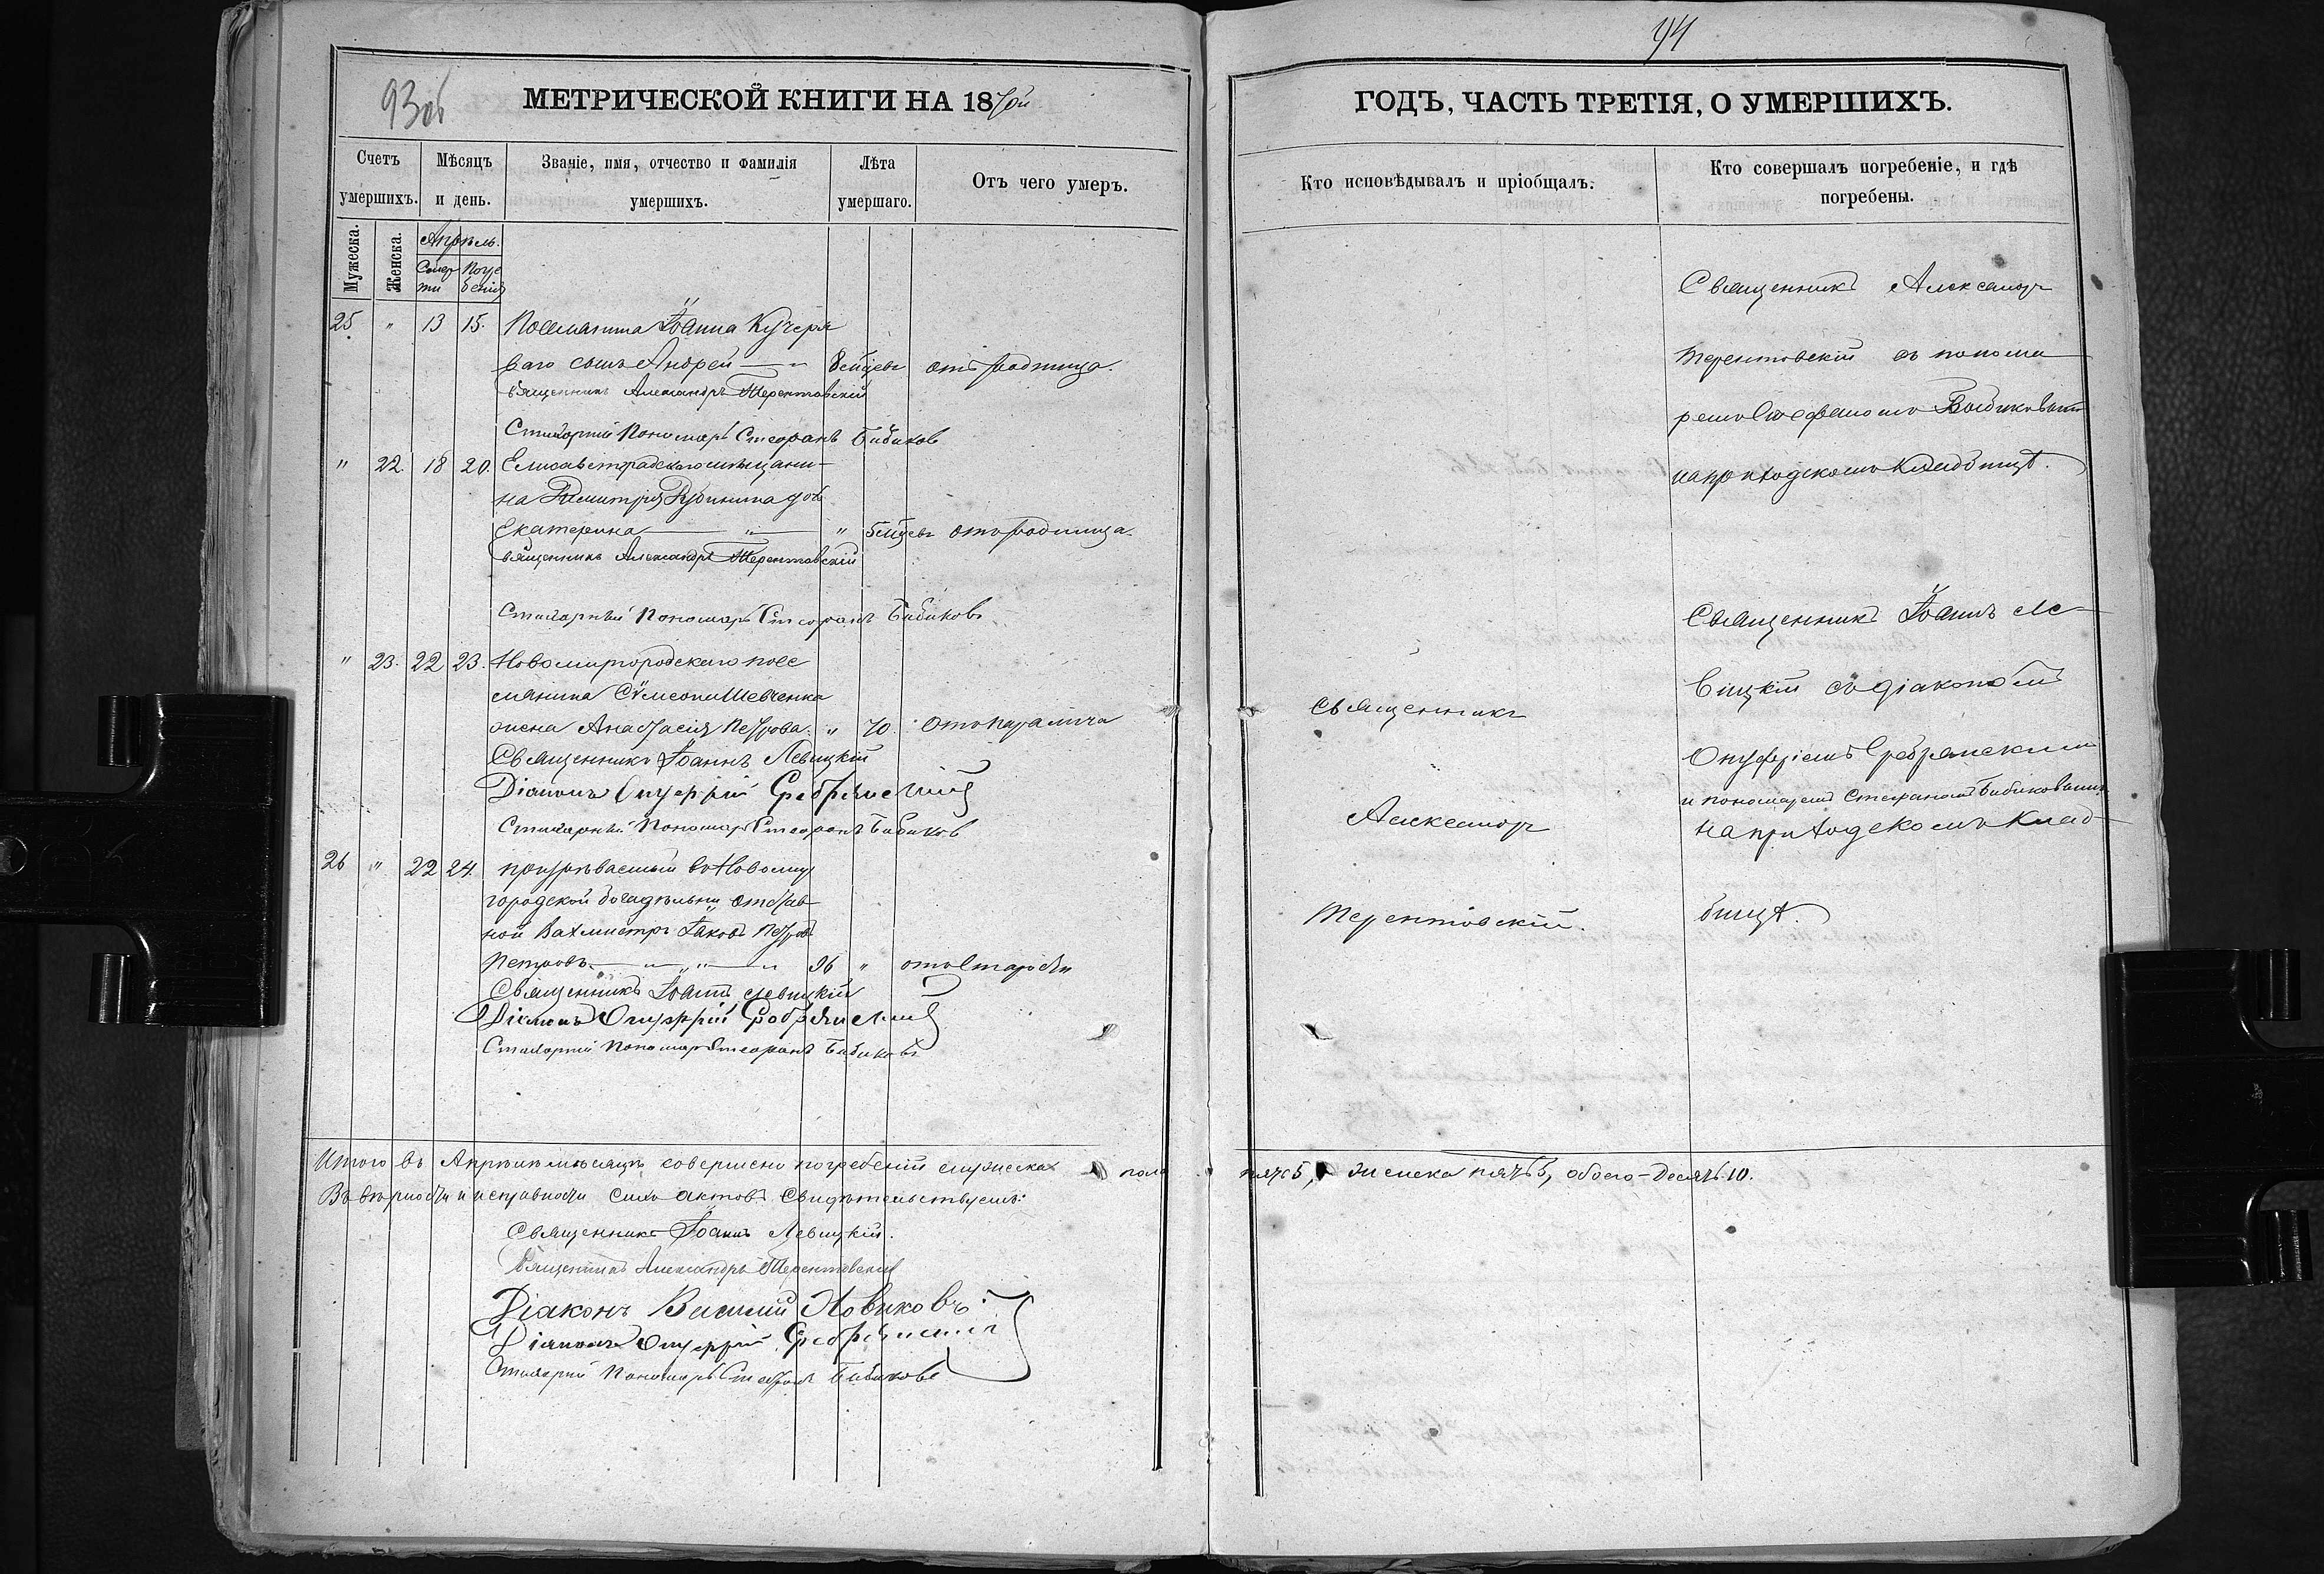 93об
МЕТРИЧЕСКОЙ КНИГИ НА 1870й
Счетъ умершихъ.
Мѣсяцъ и день.
Званіе, имя, отчество и фамилія умершихъ.
Лѣта умершаго.
Отъ чего умеръ.
Мужеска.
Женска.
Апрѣль.
Смер Погре
ти бенія
25 " 13 15. Поселянина Іоанна Кучеря
ваго сынъ Андрей — " 8 мѣсяцы отъ родимца.
Священникъ Александръ Терентовскій
Стихарный Пономарь Стефанъ Бибиковъ
" 22. 18 20. Елисаветградскаго мѣщани-
на Димитрія дочь
Екатерина — " — " отъ родимца.
Священникъ Александръ Терентовскій
Стихарный Пономарь Стефанъ Бибиковъ
" 23. 22 23. Новомиргородскаго посе
лянина Сѵмеона Шевченка
жена Анастасія Петрова. " 70. отъ паралича
Священникъ Іоаннъ Левицкій
Діаконъ Онуфрій Сребрянскій
Стихарный Пономарь Стефанъ Бибиковъ
26 " 22 24. призрѣваемый въ Новомир
городской богадѣльни отстав
ной Вахмистръ Іаковъ Петровъ
Петровъ. — " — " 96 " отъ старости
Священникъ Іоаннъ Левицкій
Діаконъ Онуфрій Сребрянскій
Стихарный Пономарь Стефанъ Бибиковъ
Итого въ Апрѣлѣ мѣсяцѣ совершено погребеній мужеска пола
Въ вѣрности и исправности сихъ актовъ свидѣтельствуемъ:
Священникъ Іоаннъ Левицкій.
Священникъ Александръ Терентовскій
Діаконъ Василій Новиковъ
Діаконъ Онуфрій Сребрянскій
Стихарный Пономарь Стефанъ Бибиковъ
94
ГОДЪ, ЧАСТЬ ТРЕТІЯ, О УМЕРШИХЪ.
Кто исповѣдывалъ и пріобщалъ.
Кто совершалъ погребеніе, и гдѣ погребены.
Священникъ Александръ
Терентовскій съ понома
ремъ Стефаномъ Бибиковымъ
на приходскомъ кладбищѣ.
Священникъ Іоаннъ Ле-
вицкій съ діакономъ
Онуфріемъ Сребрянскимъ
и пономаремъ Стефаномъ Бибиковымъ
на приходскомъ клад-
бищѣ.
Священникъ
Александръ
Терентовскій.
пять 5, женска пять 5, обоего – десять 10.